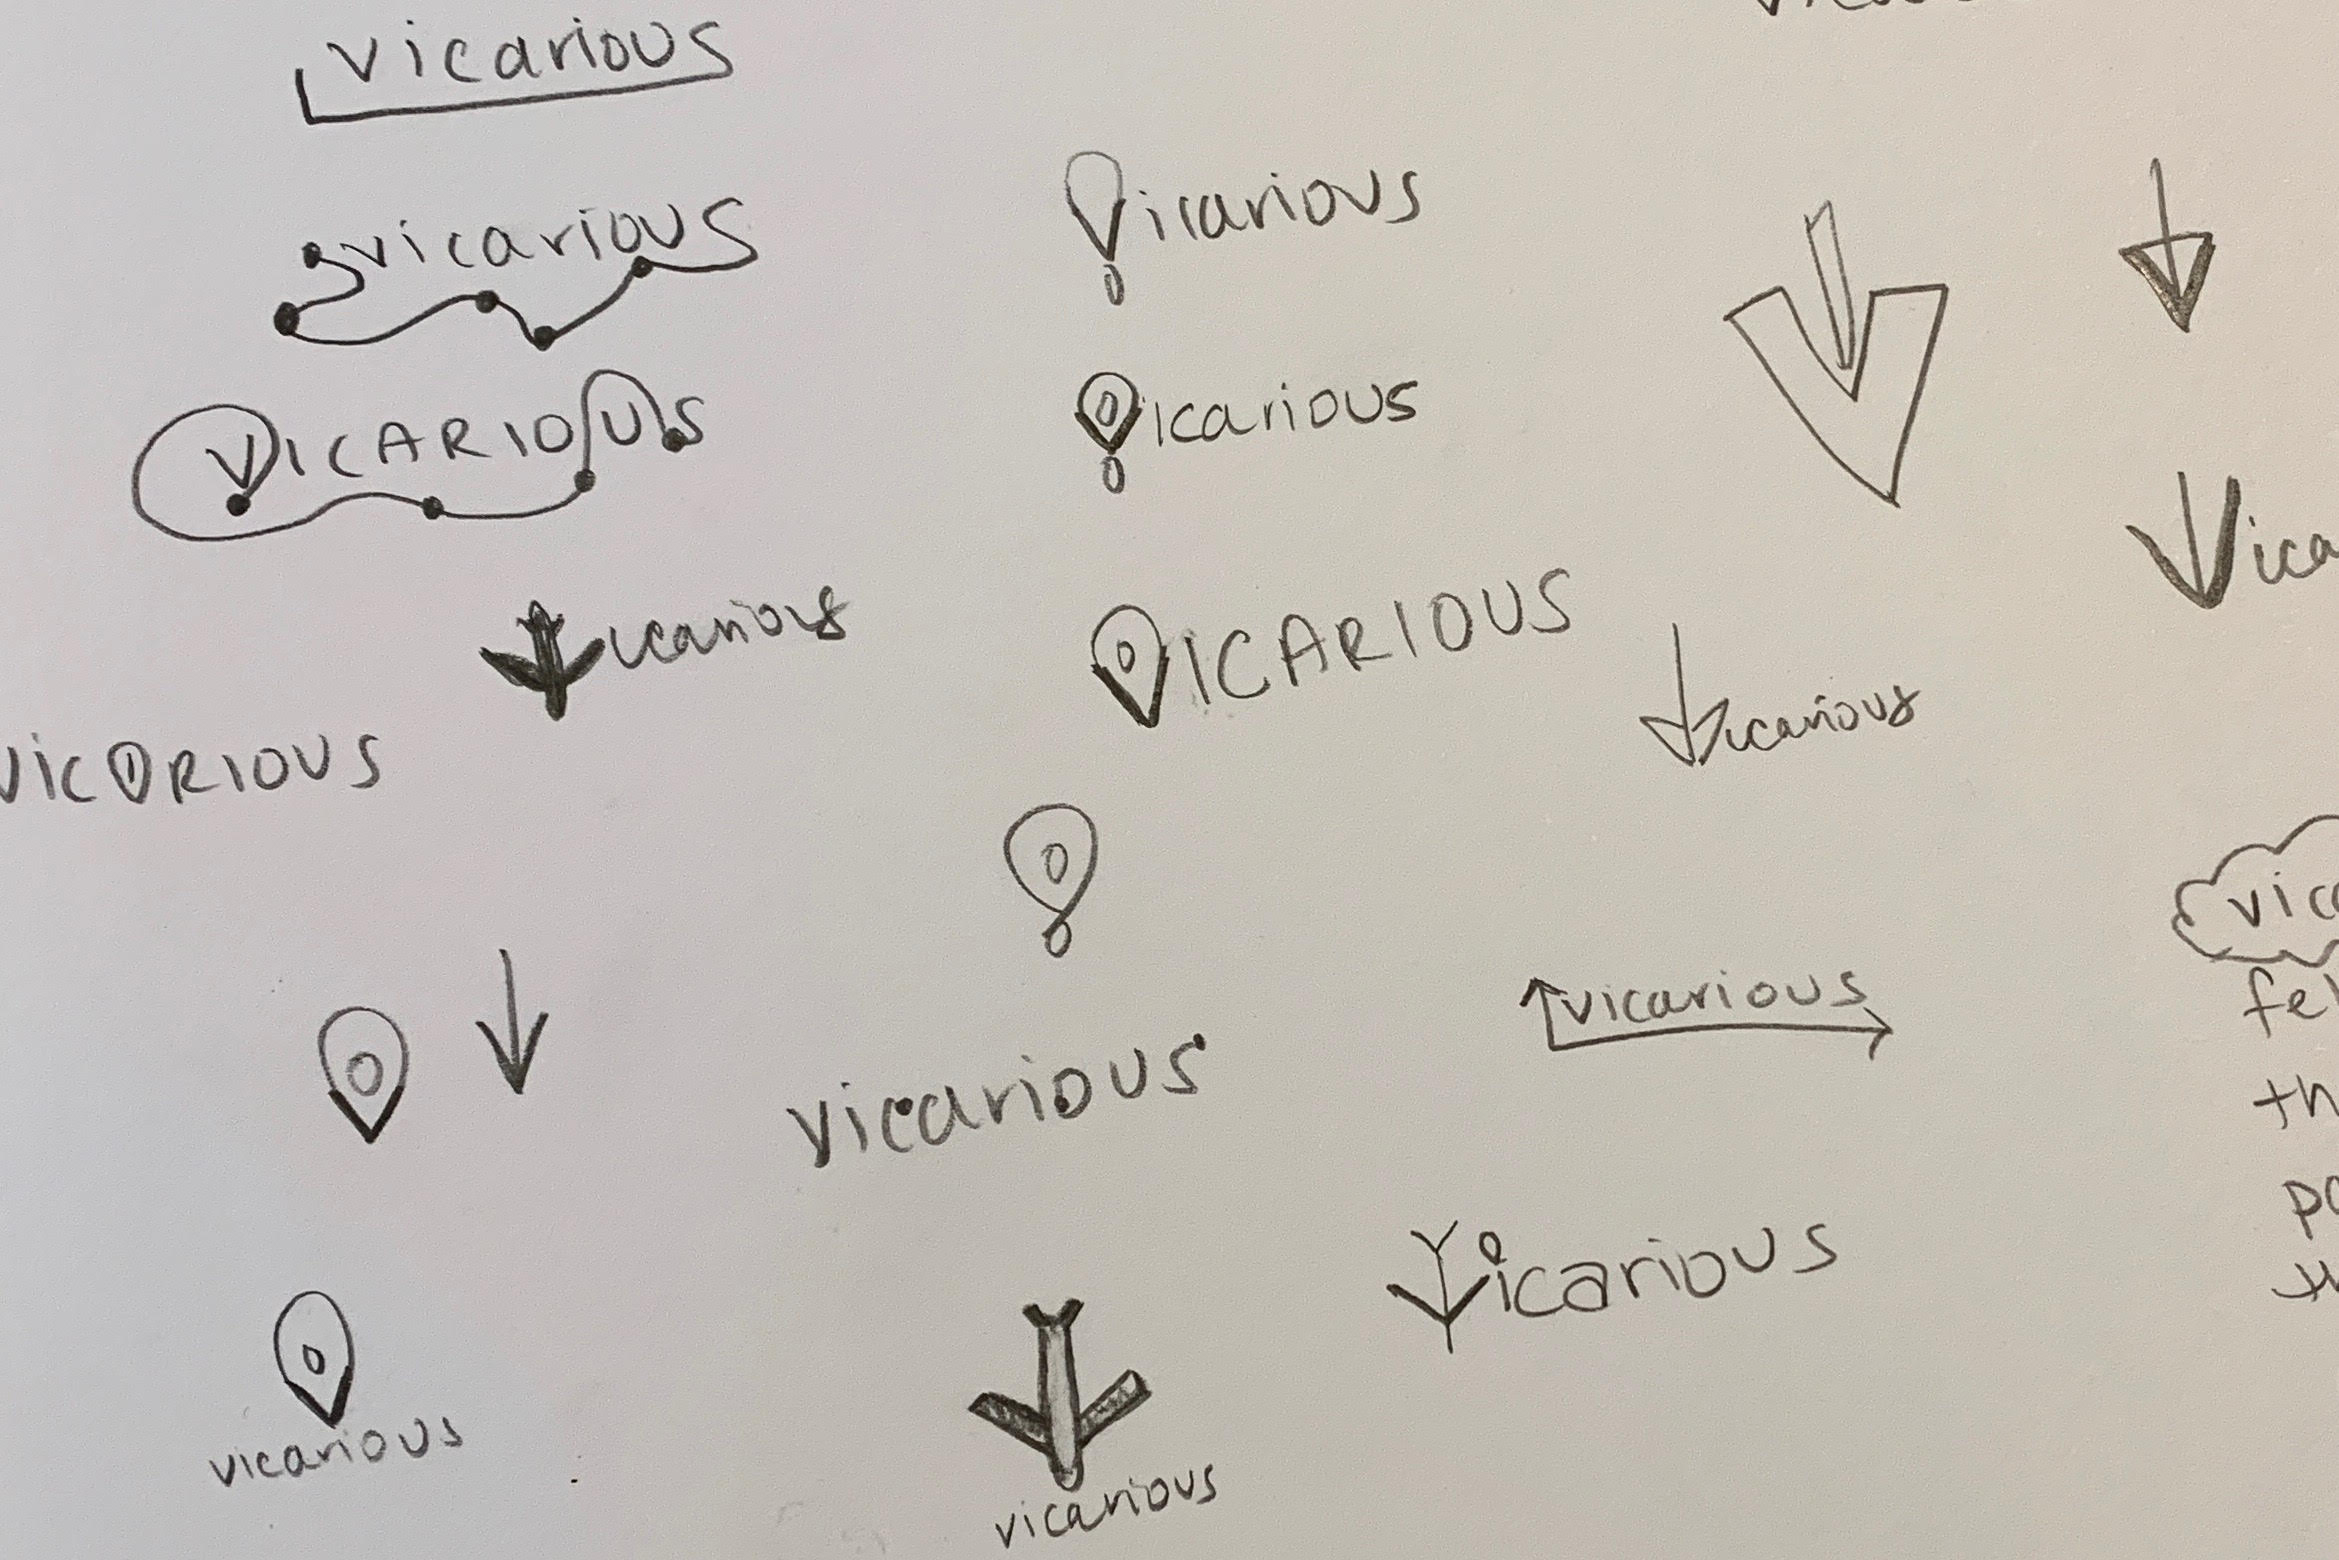 vicarious
vicarious
vicarious
VICARIOUS
vicarious
vicarious
VICARIOUS
vicarious
VICORIOUS
vicarious
vicarious
vicarious
vicarious
vicarious
vicarious